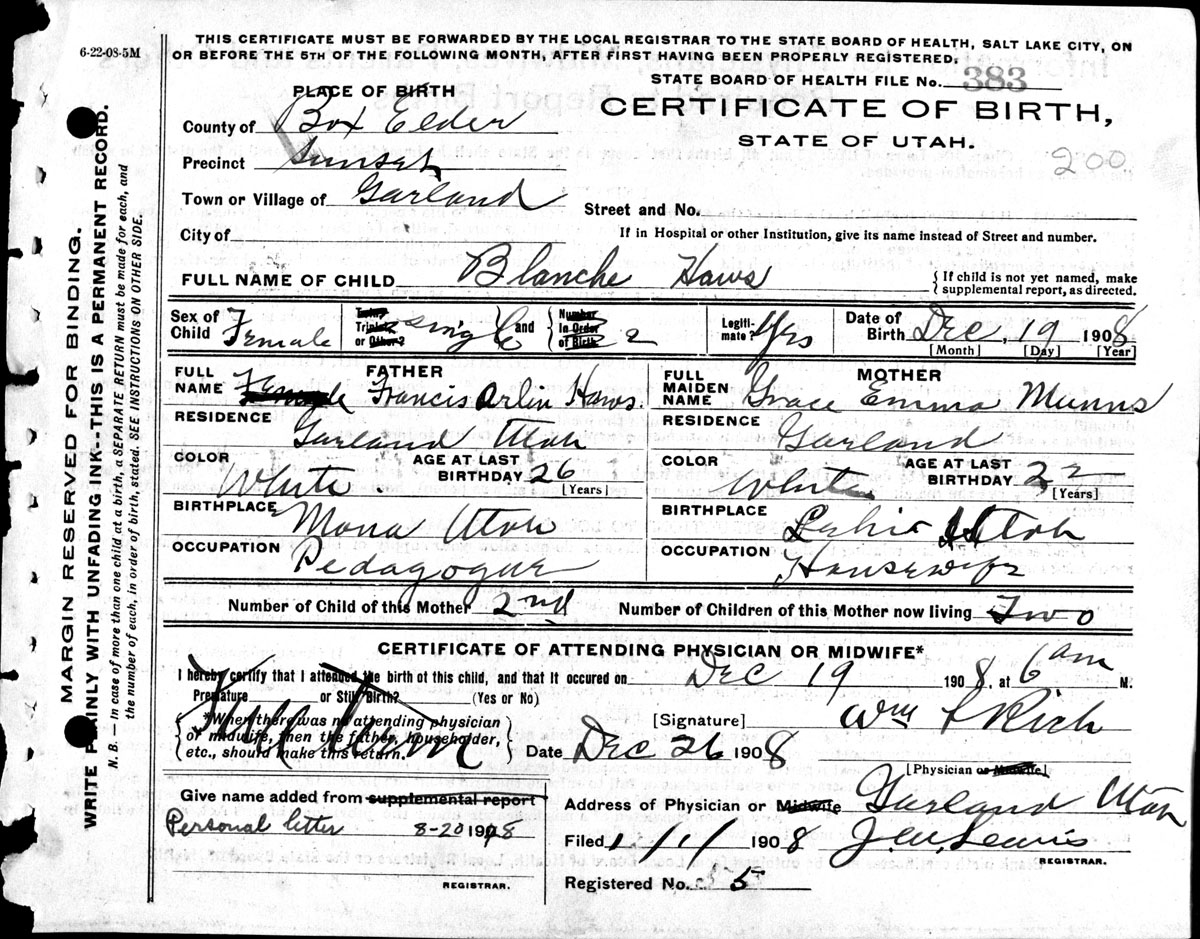 6-22-08-5M
THIS CERTIFICATE MUST BE FORWARDED BY THE LOCAL REGISTRAR TO THE STATE BOARD OF HEALTH, SALT LAKE CITY, ON
OR BEFORE THE 5TH OF THE FOLLOWING MONTH, AFTER FIRST HAVING BEEN PROPERLY REGISTERED.
STATE BOARD OF HEALTH FILE No. 383
PLACE OF BIRTH
CERTIFICATE OF BIRTH,
County of Box Elder
STATE OF UTAH.
200
Precinct Sunset
Town or Village of Garland
Street and No.
City of
If in Hospital or other Institution, give its name instead of Street and number.
FULL NAME OF CHILD Blanche Haws { If child is not yet named, make
supplemental report, as directed.
Sex of Child Female
Twin, Triplet, or Other? Single { and } Number In Order of Birth 2
Legiti-mate? Yes
Date of Birth Dec, 19 1908
[Month] [Day] [Year]
FATHER
FULL NAME Francis Arlin Haws.
MOTHER
FULL MAIDEN NAME Grace Emma Munns
RESIDENCE Garland Utah
RESIDENCE Garland
COLOR White AGE AT LAST BIRTHDAY 26
[Years]
COLOR White AGE AT LAST BIRTHDAY 22
[Years]
BIRTHPLACE Mona Utah
BIRTHPLACE Lehi Utah
OCCUPATION Pedagogue
OCCUPATION Housewife
Number of Child of this Mother 2nd Number of Children of this Mother now living Two
CERTIFICATE OF ATTENDING PHYSICIAN OR MIDWIFE*
I hereby certify that I attended the birth of this child, and that it occured on Dec 19 1908, at 6 am M.
Premature or Still Birth? (Yes or No)
Full term
{ *When there was no attending physician
or midwife, then the father, householder,
etc., should make this return. }
[Signature] Wm F Rich
Date Dec 26 1908
[Physician or Midwife]
Give name added from supplemental report
Personal letter 8-20 1918
REGISTRAR.
Address of Physician or Midwife Garland Utah
Filed 1/1/ 1908 J.W. Lewis
REGISTRAR.
Registered No. 55
MARGIN RESERVED FOR BINDING.
WRITE PLAINLY WITH UNFADING INK--THIS IS A PERMANENT RECORD.
N. B. — In case of more than one child at a birth, a SEPARATE RETURN must be made for each, and
the number of each, in order of birth, stated. SEE INSTRUCTIONS ON OTHER SIDE.